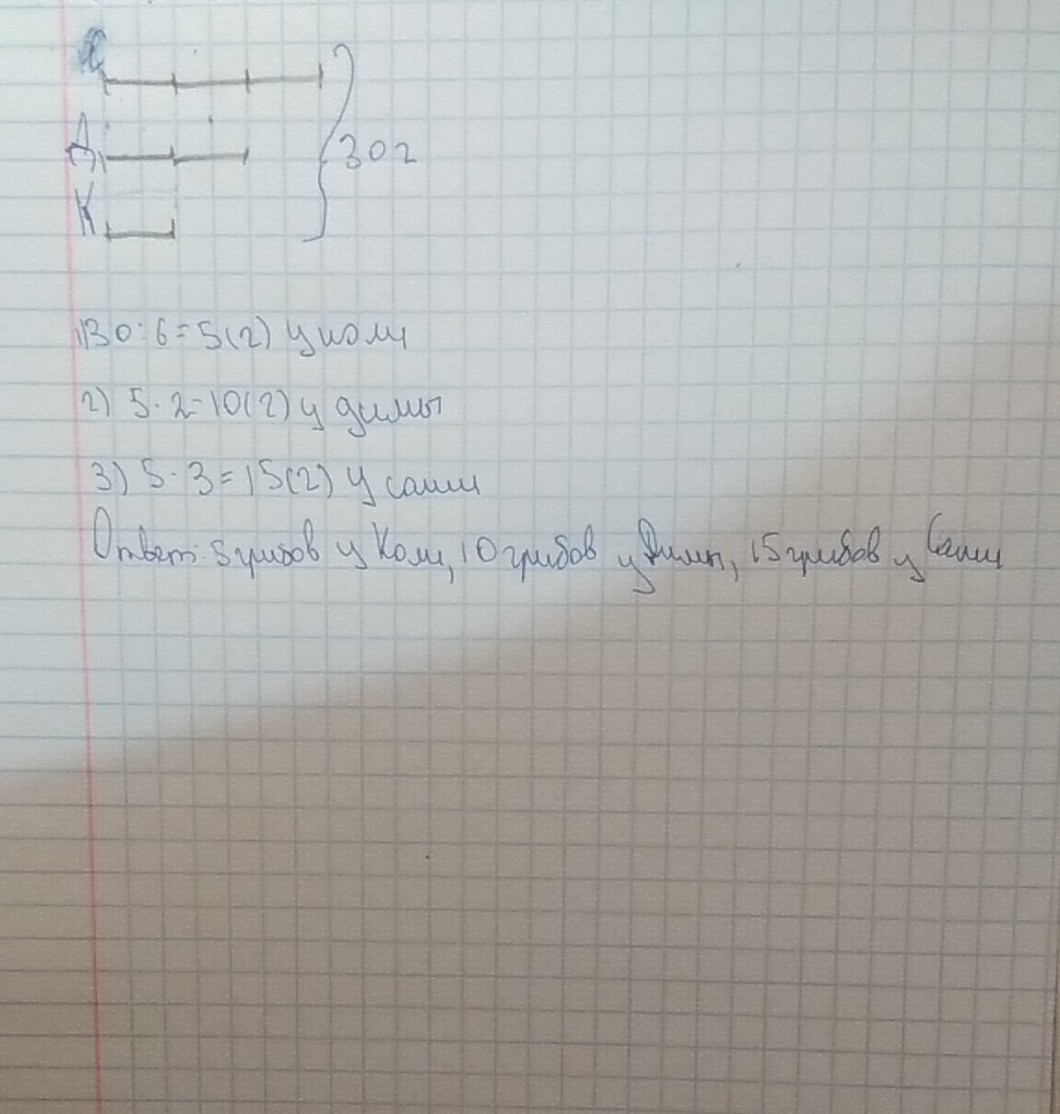 С
Д
К
30 г
1) 30:6=5(г) у коли
2) 5·2=10(г) у димы
3) 5·3=15(г) у саши
Ответ: 5 грибов у Коли, 10 грибов у Димы, 15 грибов у Саши